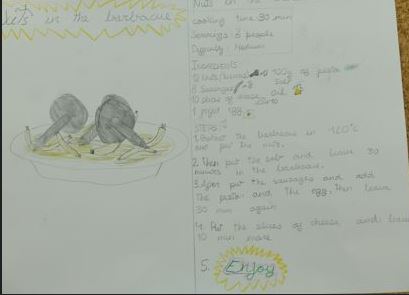 in the barbacue
Nuts on the
cooking time 30 min
Servings: 6 people
Difficulty: Medium
INGREDIENTS:
100g of pasta
Sausages salt
10 slices of cheese oil
1 egg
STEPS:
1. the barbacue in 120°c
and put the nuts.
2. Then put the salt and leave 30
minutes in the barbacue.
3. After put the sausages and add
the pasta and the egg, then leave
30 min again
4. Put the slices of cheese and leave
10 min more
5. Enjoy